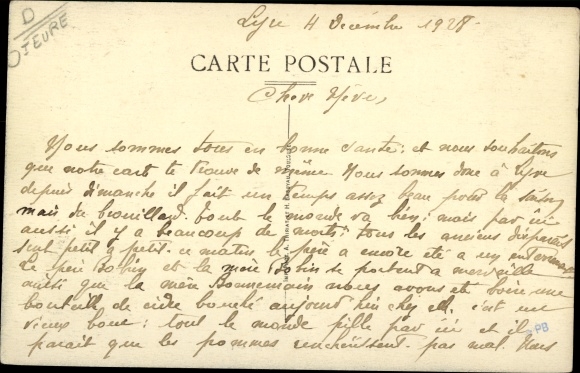 D
JEURE
Lyre 4 Décembre 1928
CARTE POSTALE
Chere
Nous sommes tous en bonne santé ; et nous souhaitons
que notre carte te trouve de même. Nous sommes donc à Lyre
depuis dimanche il fait un temps assez beau pour la saison
mais du brouillard. tout le monde va bien ; mais par ici
aussi il y a beaucoup de morts ; tous les anciens disparaissent
petit à petit. ce matin le père a encore été a un enterrement
Le père Bobin et la mère Bobin se portent a merveille
ainsi que la mère Bonnemain nous avons été boire une
bouteille de cidre bouché aujourd'hui chez elle. c'est un
vieux : tout le monde pille par ici et il
parait que les pommes pas mal. Nous
PB